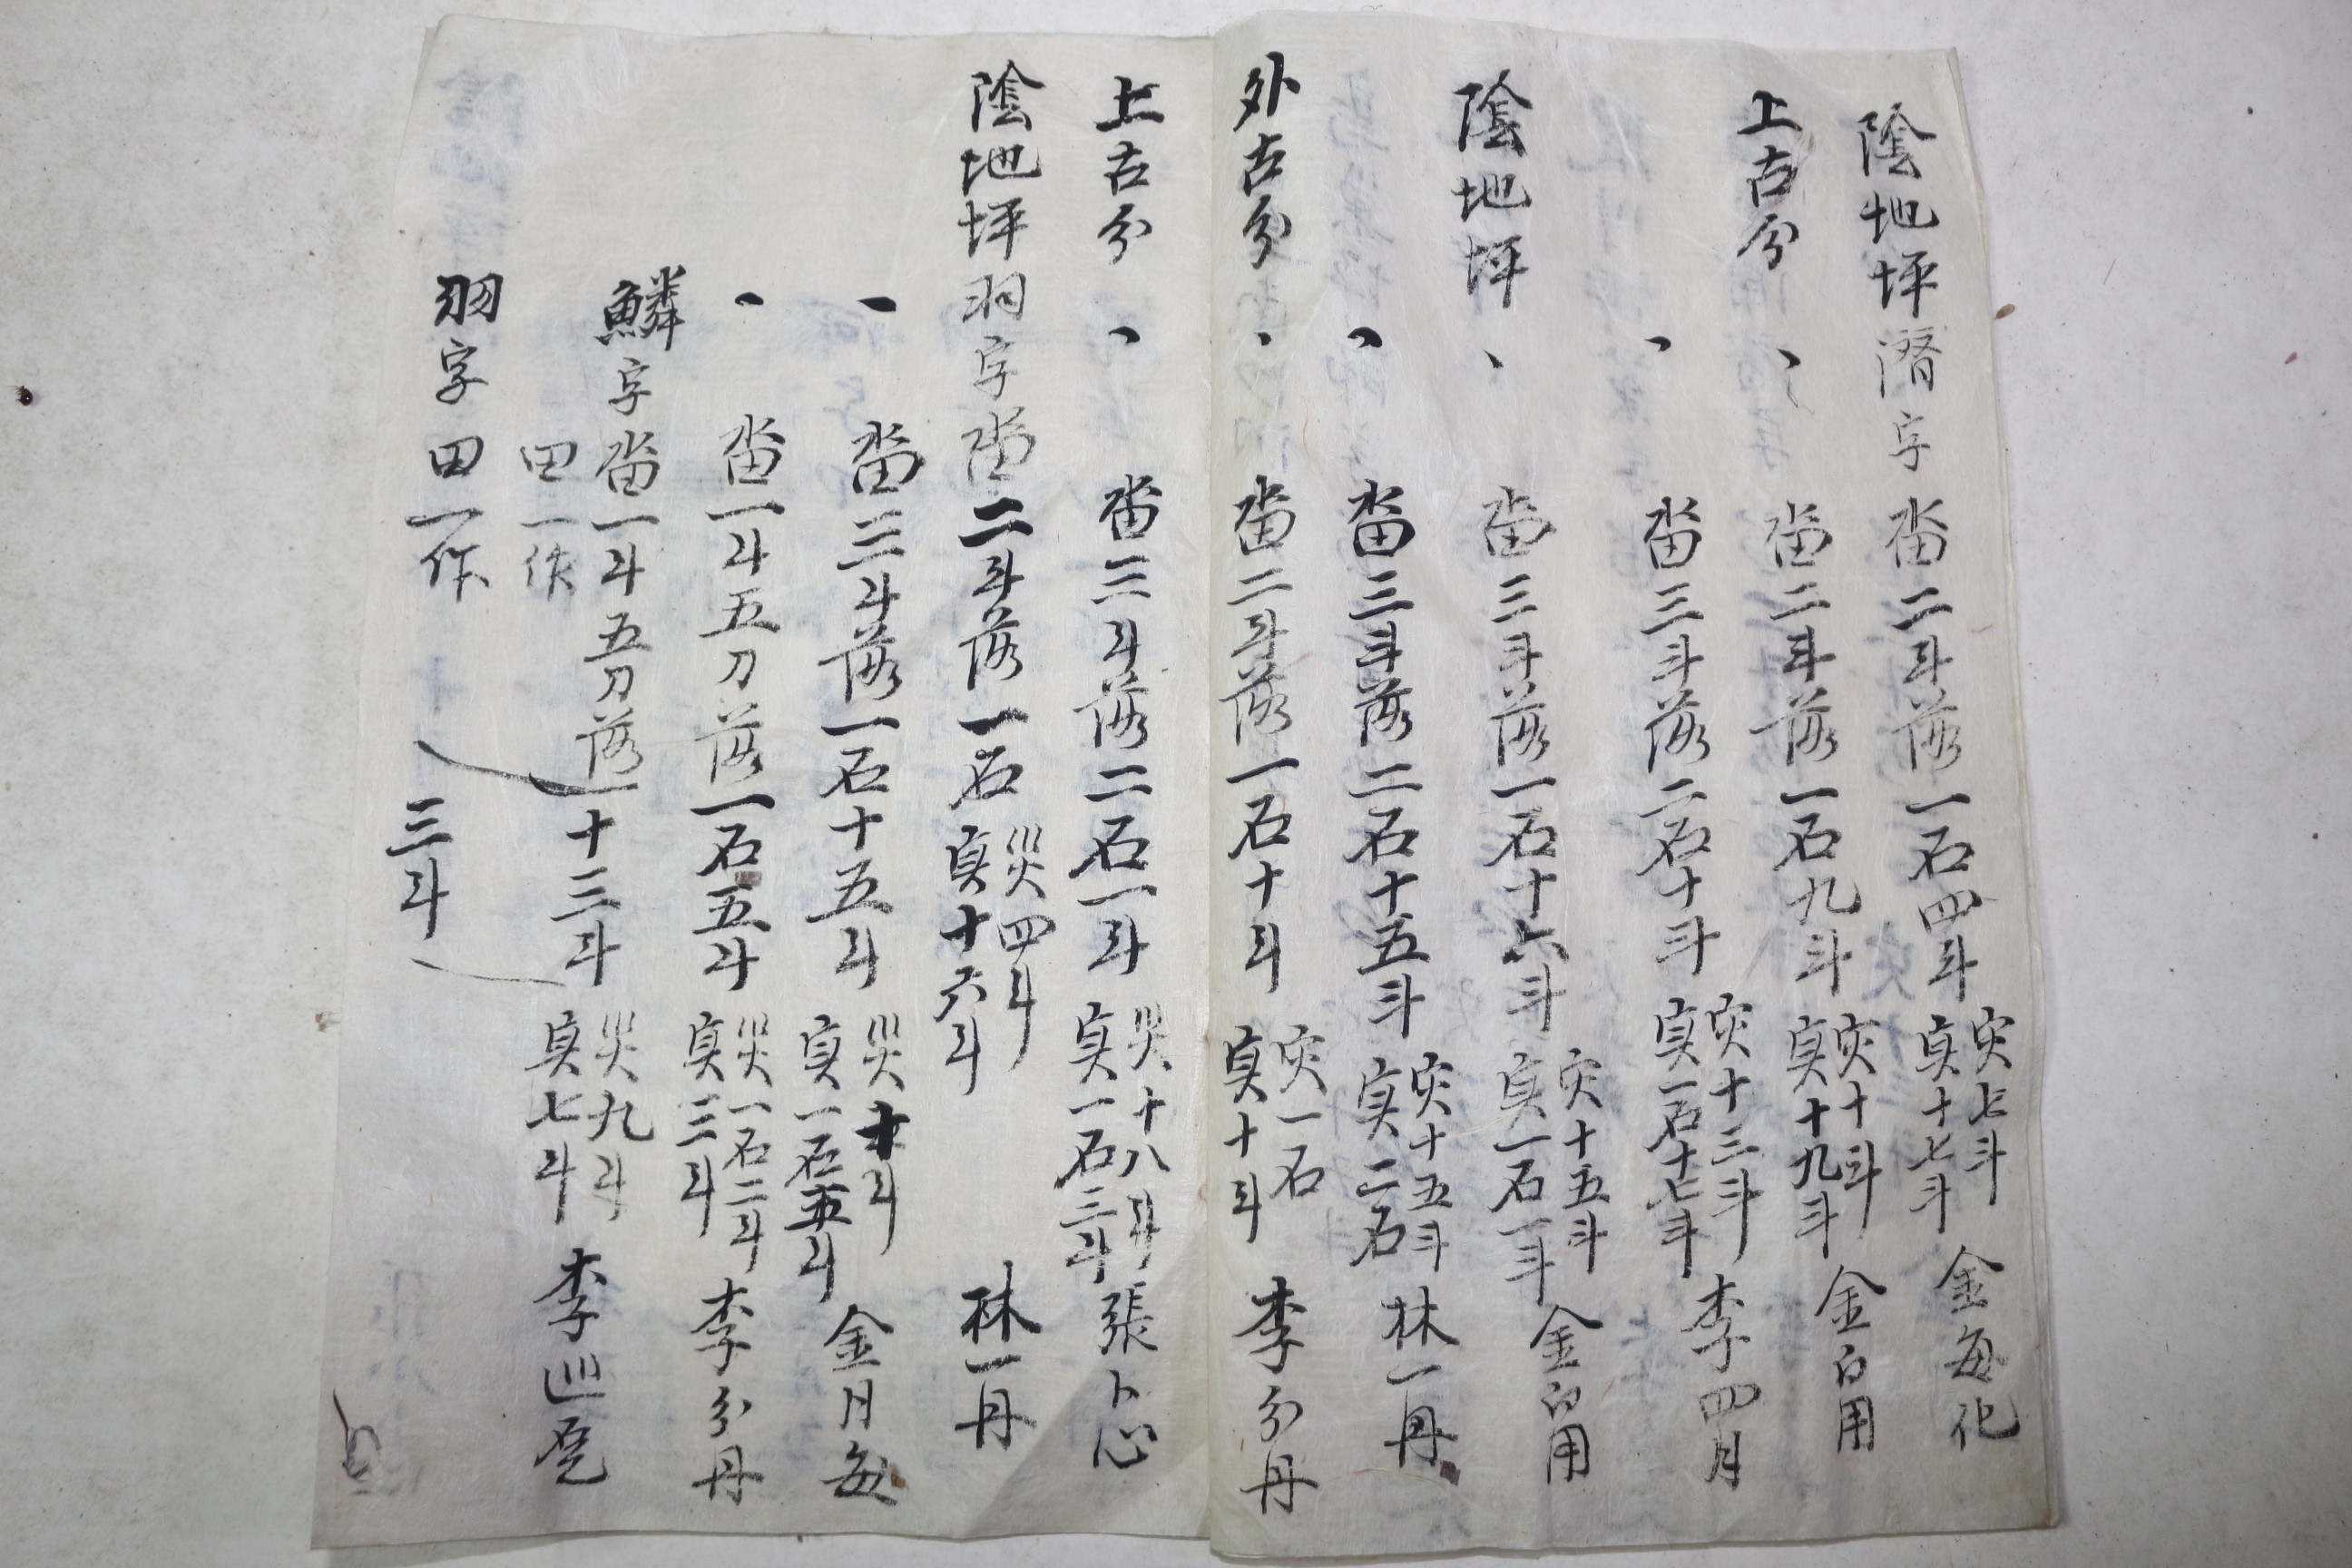 陰地坪潛字畓二斗落一石四斗 灾七斗 實十七斗 金每化
上古分、畓二斗落一石九斗 灾十斗 實十九斗 金白用
、畓三斗落二石十斗 灾十三斗 實一石十七斗 李四月
陰地坪、畓三斗落一石十六斗 灾十五斗 實一石一斗 金白用
、畓三斗落二石十五斗 灾十五斗 實二石 林一丹
外古分、畓二斗落一石十斗 灾一石 實十斗 李分丹
上古分、畓三斗落二石一斗 災十八斗 實一石三斗 張卜心
陰地坪羽字畓二斗落一石 災四斗 實十六斗 林一丹
、畓三斗落一石十五斗 災十斗 實一石五斗 金月每
、畓一斗五刀落一石五斗 災一石二斗 實三斗 李分丹
鱗字畓一斗五刀落十三斗 災九斗 實七斗 李巡
田一作
羽字田一作 三斗